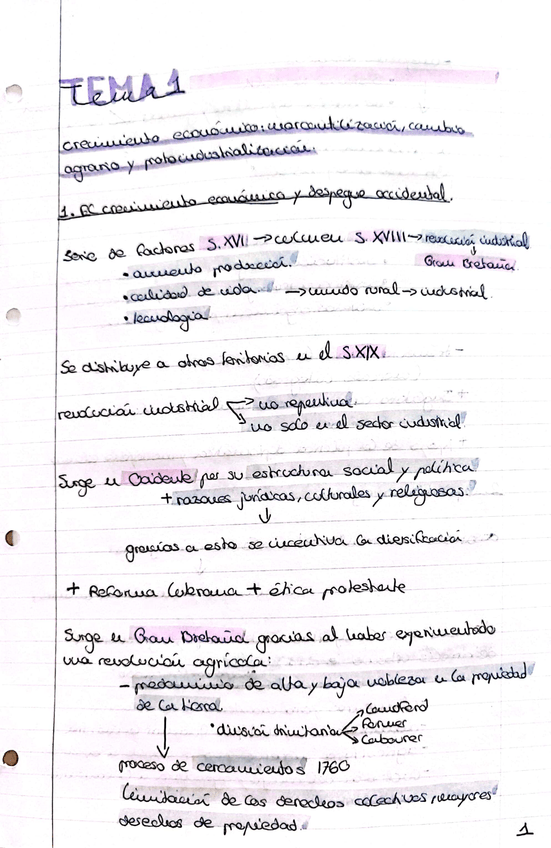 TEMA 1
crecimiento económico: mercantilización, cambio
agrario y protoindustrialización.
1. El crecimiento económico y despegue occidental.
Serie de factores S. XVI → culmen S. XVIII → revolución industrial
↓
Gran Bretaña
• aumento producción.
• calidad de vida. → mundo rural → industrial.
• tecnología
Se distribuye a otros territorios en el S.XIX.
revolución industrial → no repentina.
→ no solo en el sector industrial.
Surge en Occidente por su estructura social y política
+ razones jurídicas, culturales y religiosas.
↓
gracias a esto se incentiva la diversificación
+ Reforma luterana + ética protestante
Surge en Gran Bretaña gracias al haber experimentado
una revolución agrícola:
- predominio de alta y baja nobleza en la propiedad
de la tierra.
• división trinitaria → Landlord
→ Farmer
→ Labourer
↓
proceso de cercamientos 1760
limitación de los derechos colectivos, mayores
derechos de propiedad.
1